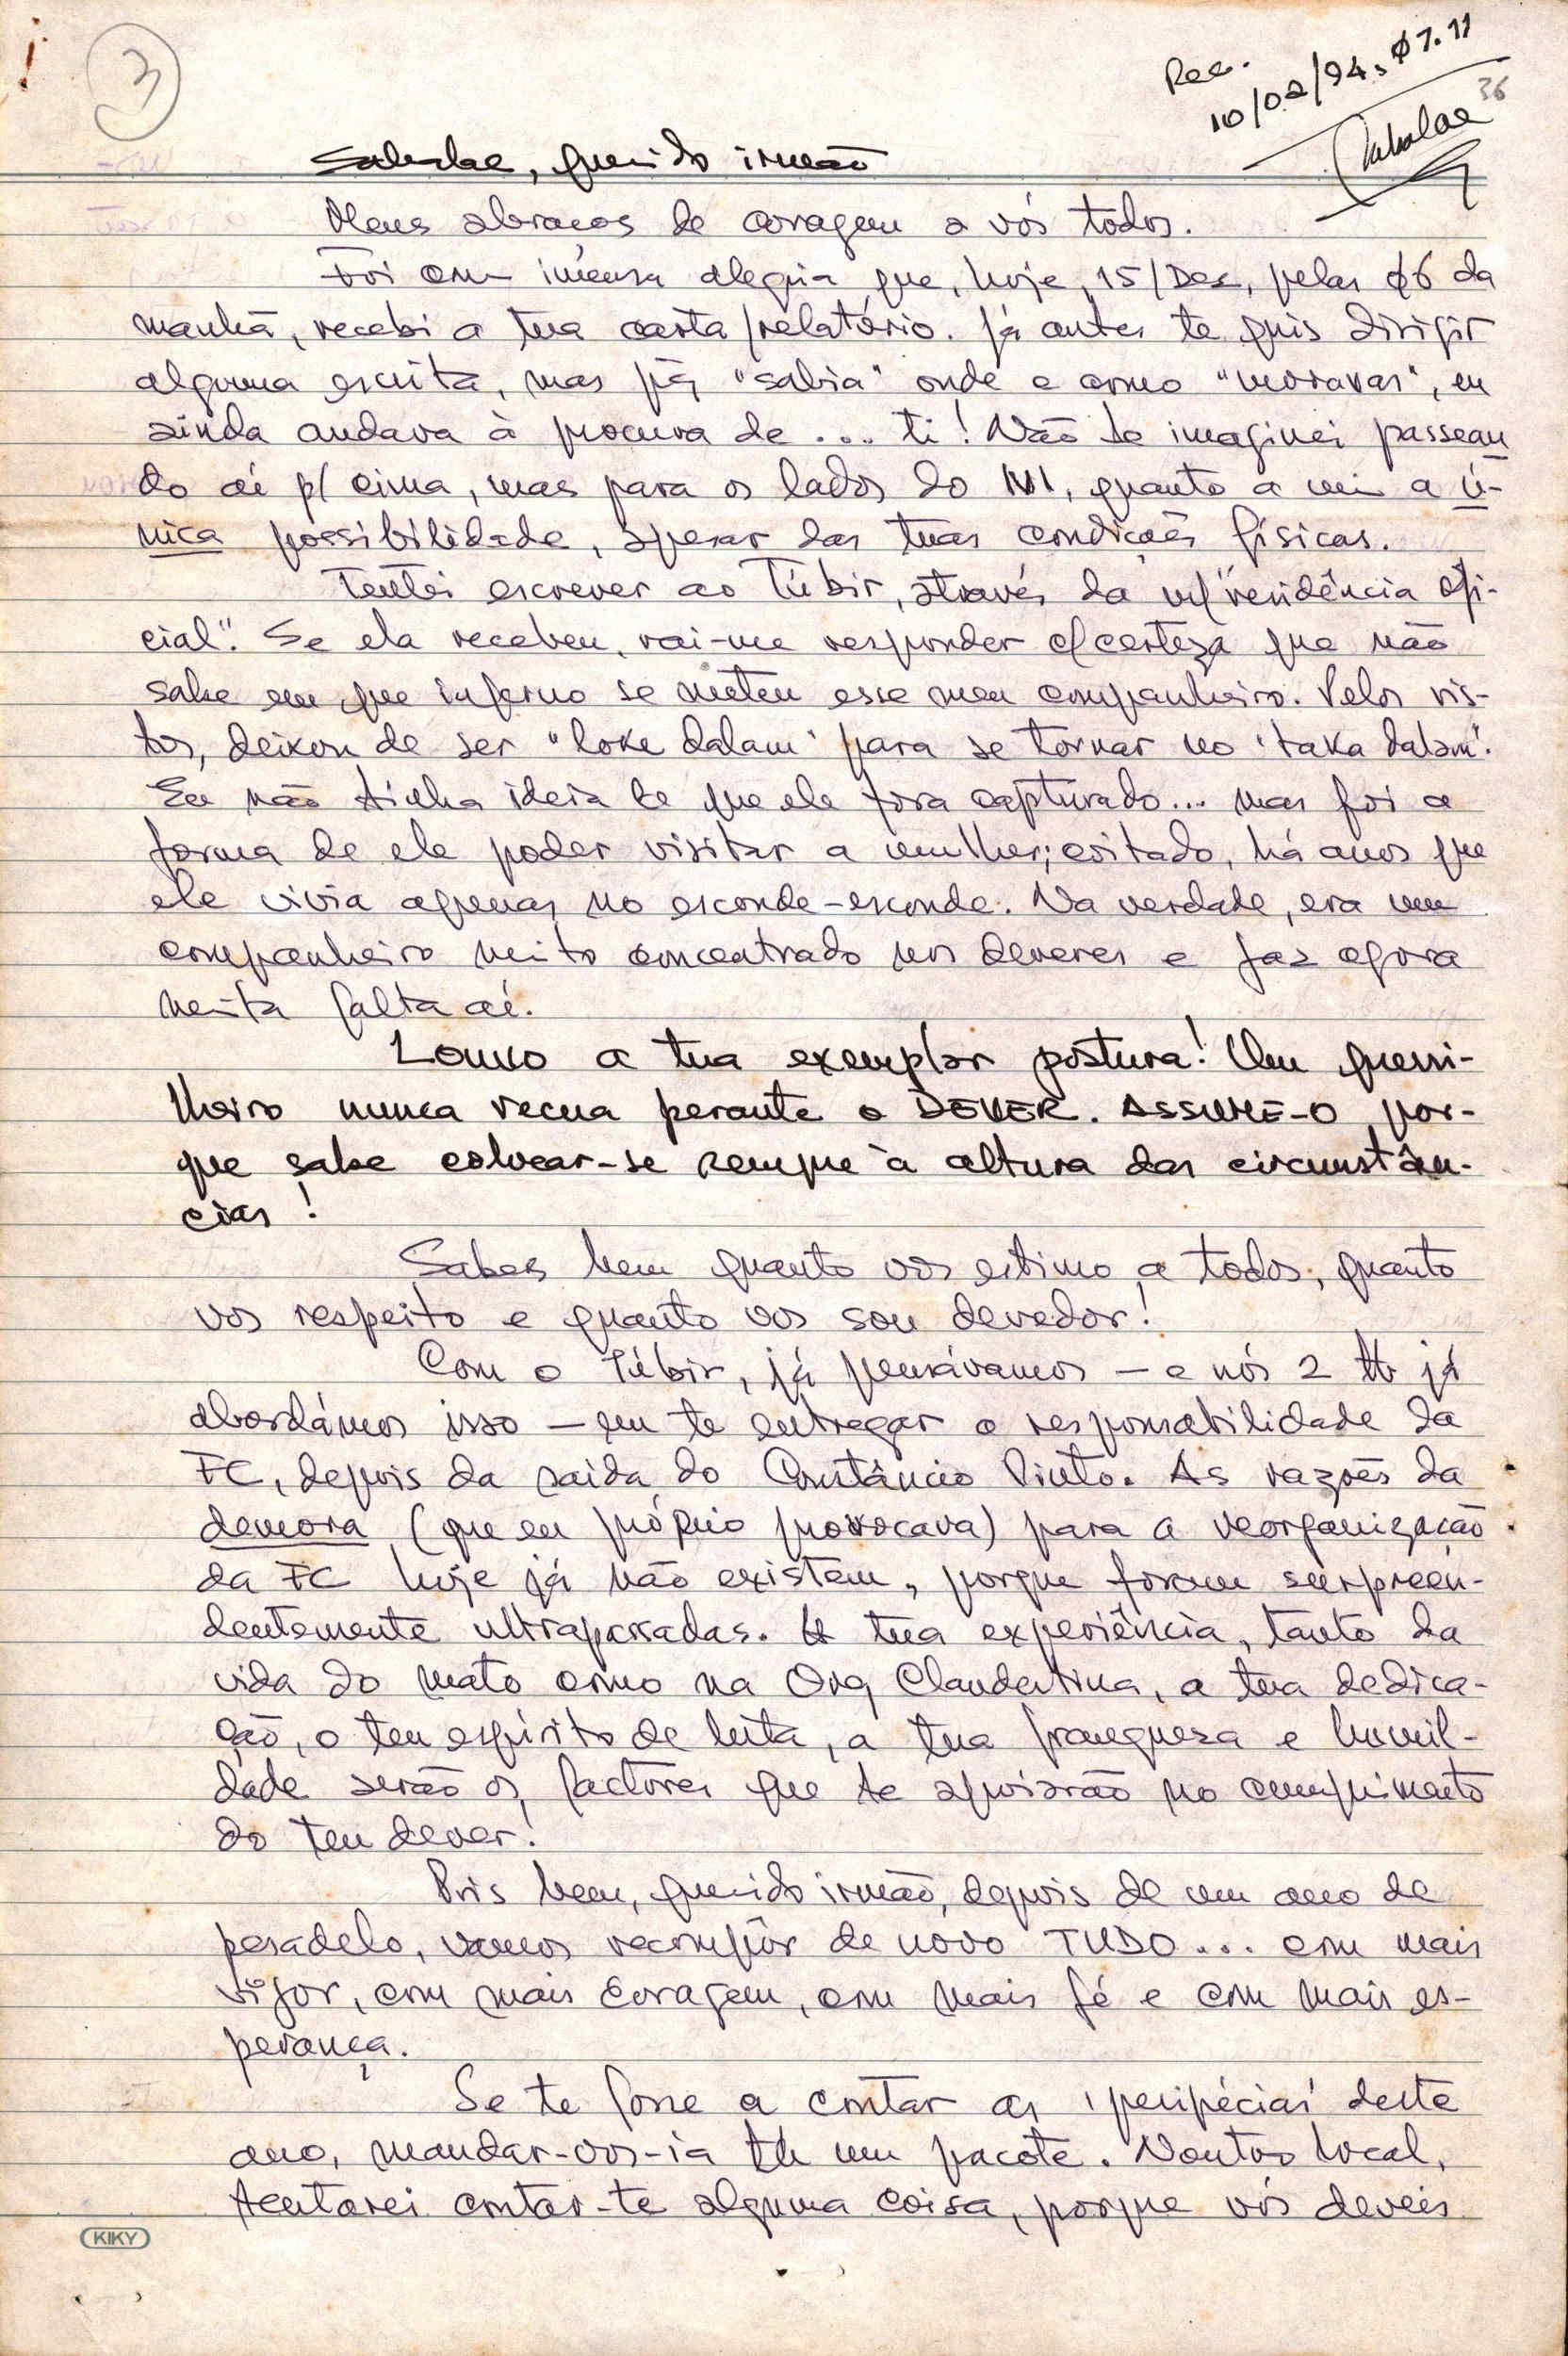 3
Rec.
10/02/94, 07.11
36
Sabalae
Sabalae, querido irmão
Meus abraços de coragem a vós todos.
Foi com imensa alegria que, hoje, 15/Dez, pelas 06 da
manhã, recebi a tua carta/relatório. Já antes te quis dirigir
alguma escrita, mas já "sabia" onde e como "moravas", eu
ainda andava à procura de ... ti! Não te imaginei passean
do aí p/ cima, mas para os lados do M, quanto a mim a ú-
nica possibilidade, apesar das tuas condições físicas.
Tentei escrever ao Túbir, através da m/"residência ofi-
cial". Se ela recebeu, vai-me responder c/certeza que não
sabe em que inferno se meteu esse meu companheiro. Pelos vis-
tos, deixou de ser "loke dalam" para se tornar no 'taka dalam'.
Eu não tinha ideia de que ele fora capturado... mas foi a
forma de ele poder visitar a mulher; coitado, há anos que
ele vivia apenas no esconde-esconde. Na verdade, era um
companheiro muito concentrado nos deveres e faz agora
muita falta aí.
Louvo a tua exemplar postura! Um guerri-
lheiro nunca recua perante o DEVER. ASSUME-O, por-
que sabe colocar-se sempre à altura das circunstân-
cias!
Sabes bem quanto vos estimo a todos, quanto
vos respeito e quanto vos sou devedor!
Com o Túbir, já pensávamos — e nós 2 tb já
abordámos isso — em te entregar a responsabilidade da
FC, depois da saída do Constâncio Pinto. As razões da
demora (que eu próprio provocava) para a reorganização
da FC hoje já não existem, porque foram surpreen-
dentemente ultrapassadas. A tua experiência, tanto da
vida do mato como na Org Clandestina, a tua dedica-
ção, o teu espírito de luta, a tua franqueza e humil-
dade serão os factores que te apoiarão no cumprimento
do teu dever!
Pois bem, querido irmão, depois de um ano de
pesadelo, vamos recompôr de novo TUDO... com mais
vigor, com mais coragem, com mais fé e com mais es-
perança.
Se te fosse a contar as 'peripécias' deste
ano, mandar-vos-ia tb um pacote. Noutro local,
tentarei contar-te alguma coisa, porque vós deveis
KIKY